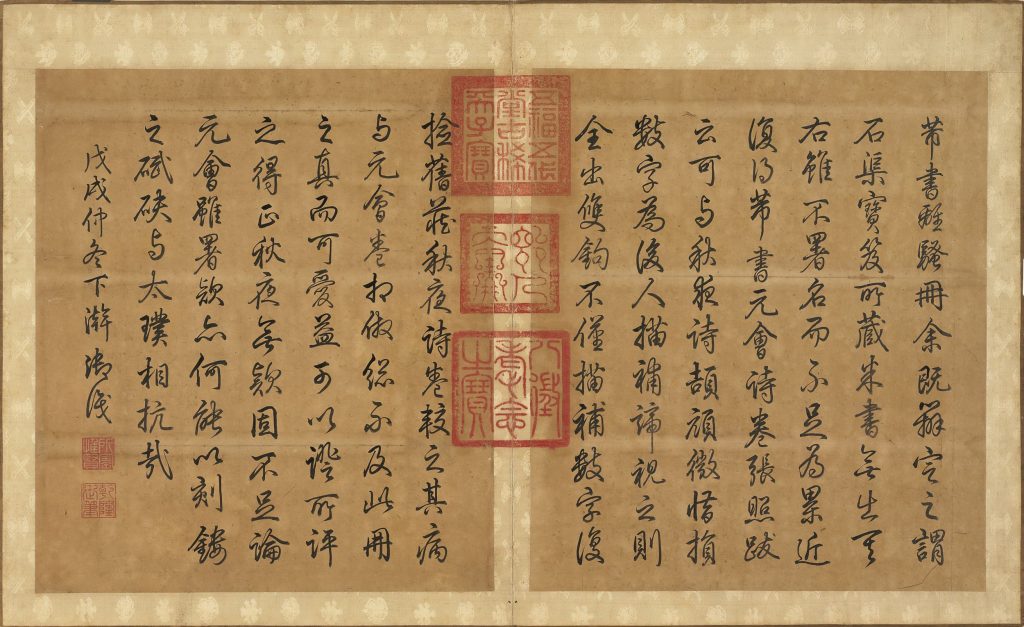 芾書離騷冊余既辯定之謂
石渠寶笈所藏米書無出其
右雖不署名而不足為累近
復得芾書元會詩卷張照跋
云可与秋夜詩頡頏微惜損
數字為後人描補諦視之則
全出雙鉤不僅描補數字復
撿舊藏秋夜詩卷較之其病
与元會卷相倣總不及此冊
之真而可愛益可以證所評
之得正秋夜無款固不足論
元會雖署款亦何能以刻鏤
之碔砆与太璞相抗哉
戊戌仲冬下澣御識
五福五代
堂古稀
天子寶
八徵
耄念
之寶
所寶惟賢
乾隆御筆